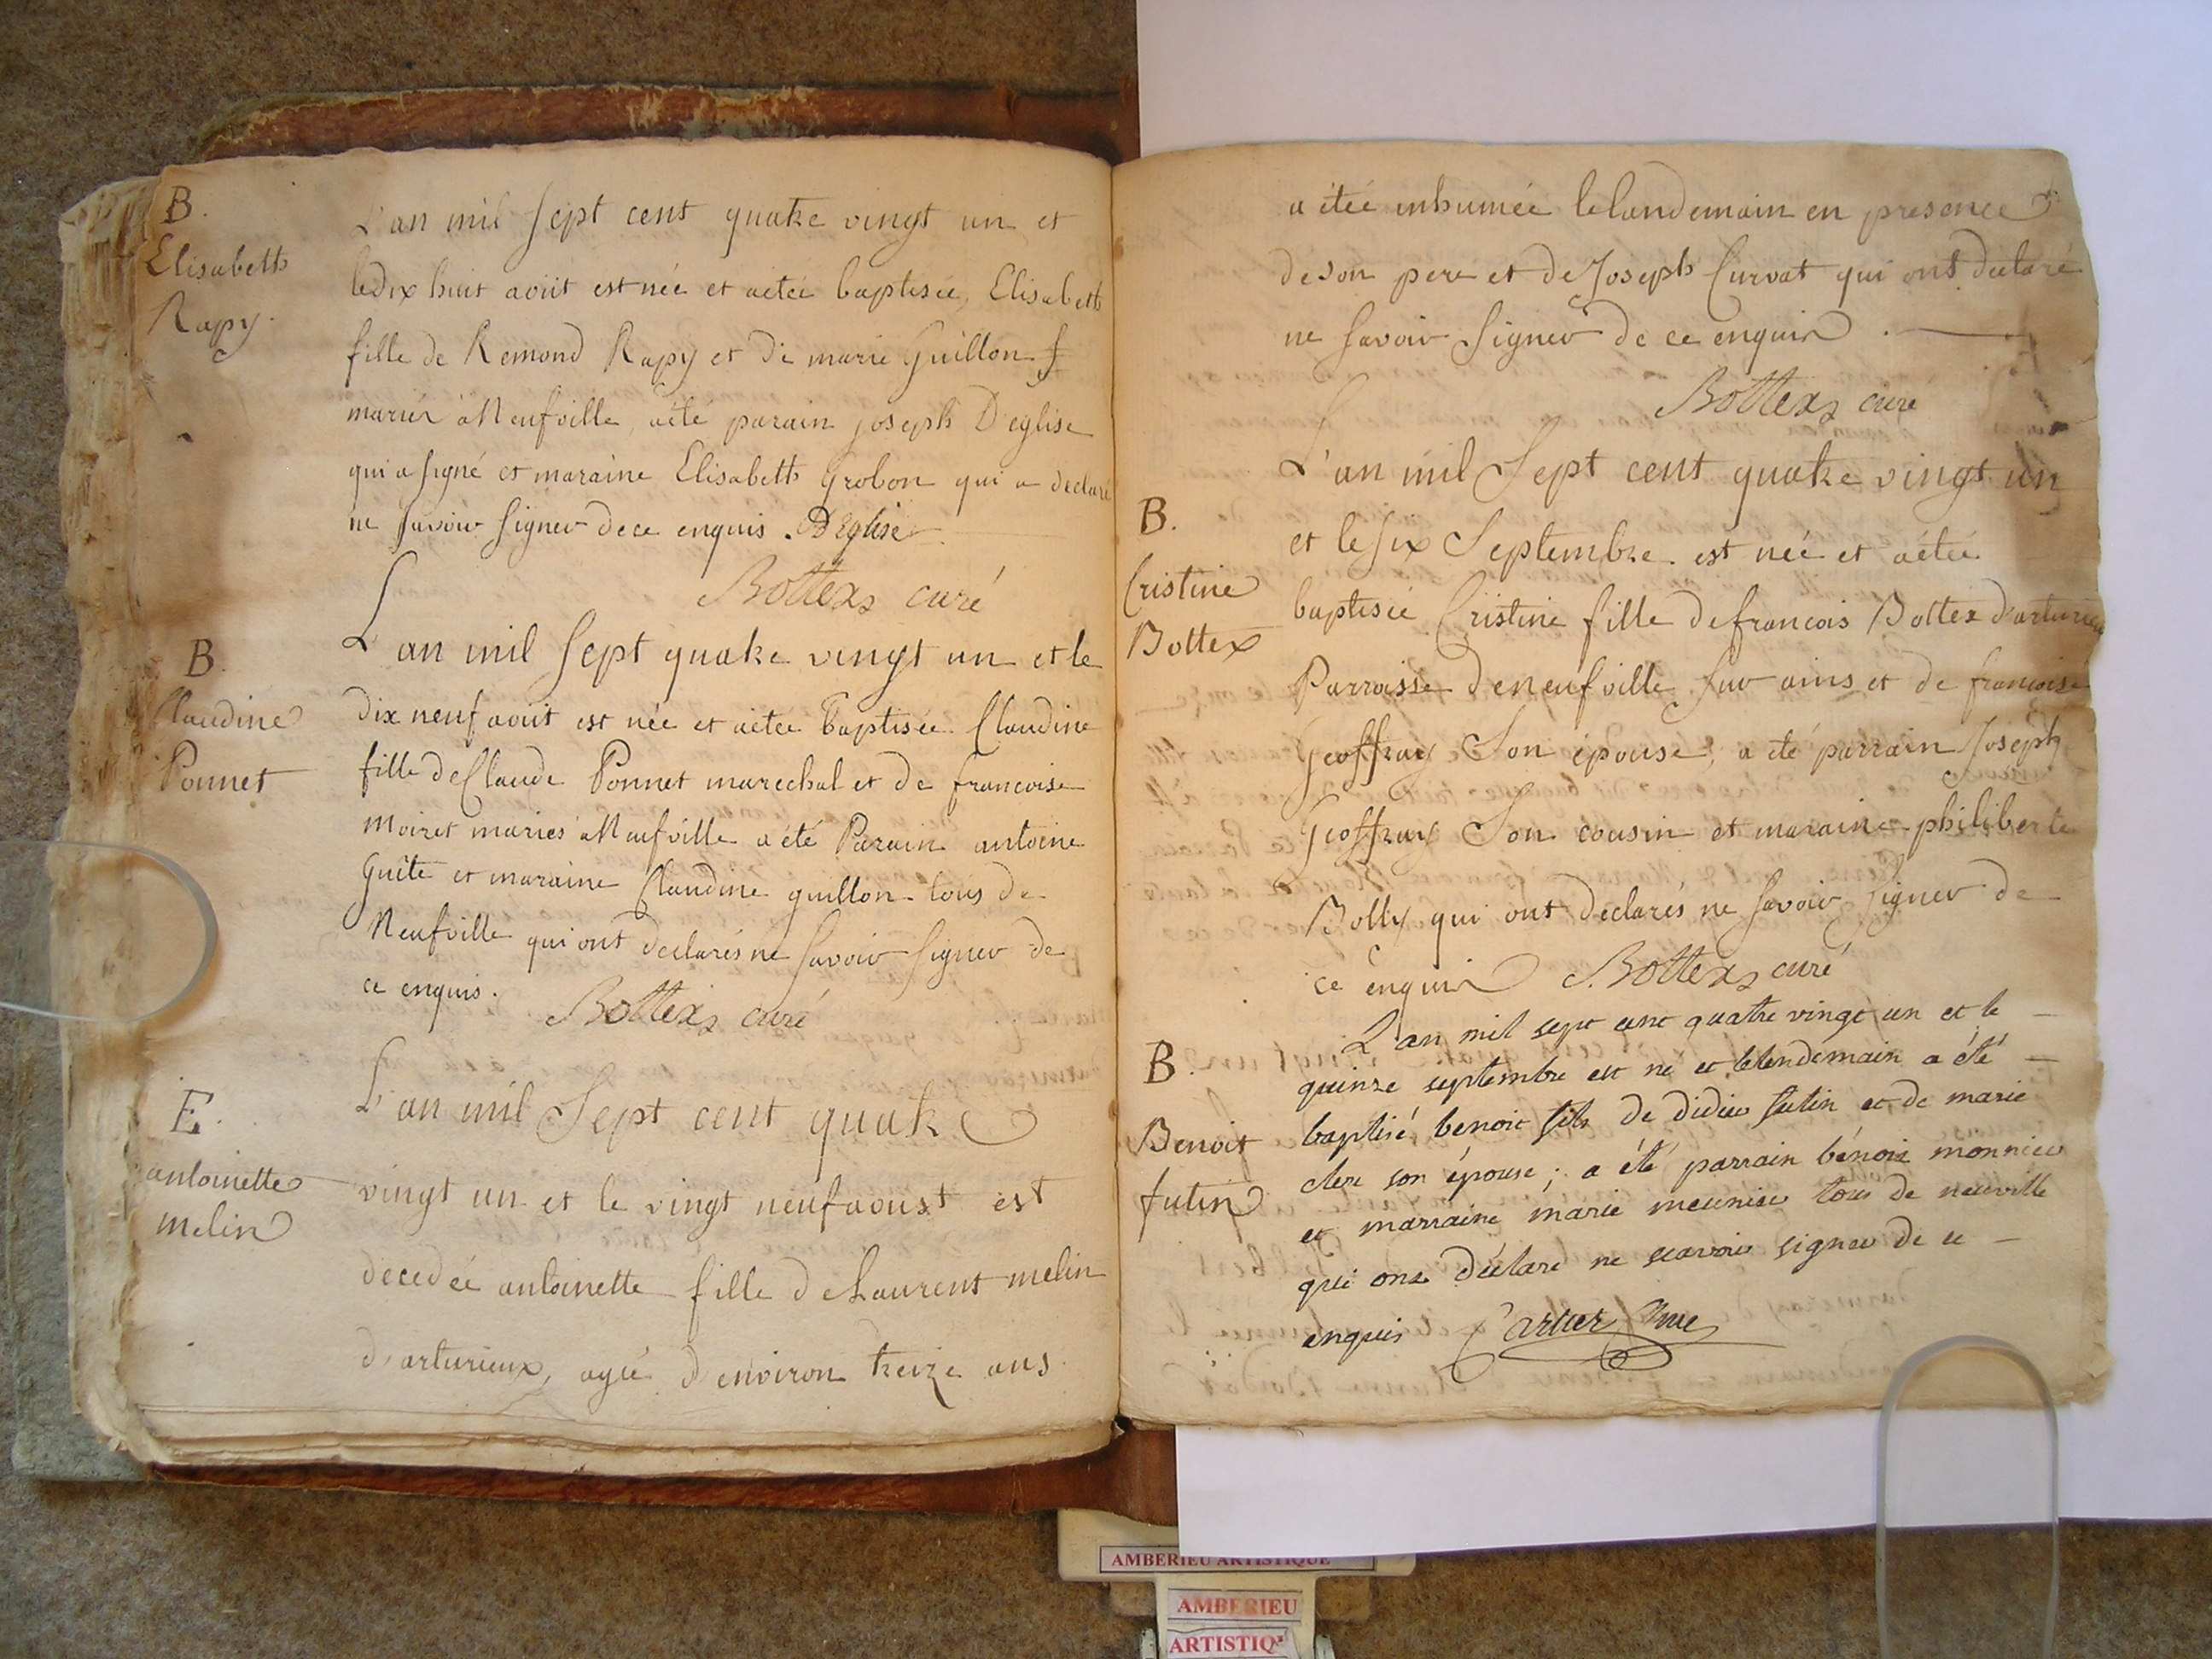 B.
Elisabeth
Rapy.
L'an mil sept cent quatre vingt un et
le dix huit août est née et a étée baptisée, Elisabeth
fille de Remond Rapy et de marie Guillon
mariés à Neufville, a été parain joseph D'eglise
qui a signé et maraine Elisabeth Grobon qui a declaré
ne savoir signer de ce enquis. DEglise
Bottex curé
B.
Claudine
Ponnet
L'an mil sept quatre vingt un et le
dix neuf août est née et a étée baptisée Claudine
fille de Claude Ponnet marechal et de francoise
Moiret mariés à Neufville a été Parain antoine
Guite et maraine Claudine guillon tous de
Neufville qui ont declarés ne savoir signer de
ce enquis.
Bottex curé
E.
antoinette
melin
L'an mil Sept cent quatre
vingt un et le vingt neuf aoust est
decedée antoinette fille de Laurent melin
d'arturieux, agée d'environ treize ans
a étée inhumée le landemain en presence
de son pere et de Joseph Curvat qui ont declaré
ne savoir signer de ce enquis.
Bottex curé
B.
Cristine
Bottex
L'an mil Sept cent quatre vingt un
et le six Septembre est née et a étée
baptisée Cristine fille de francois Bottex d'arturieux
Parroisse de neufville sur ains et de francoise
Geoffray Son épouse, a été parrain Joseph
Geoffray Son cousin et maraine philiberte
Bolly qui ont declarés ne savoir signer de
ce enquis Bottex curé
B.
Benoit
futin
L'an mil sept cent quatre vingt un et le
quinze septembre est né et le lendemain a été
baptisé benoit fils de didier futin et de marie
clere son épouse; a été parrain bénoit monnier
et marraine marie meunier tous de neuville
qui ont déclaré ne scavoir signer de ce
enquis Cartier
AMBERIEU ARTISTIQUE
AMBERIEU
ARTISTIQ